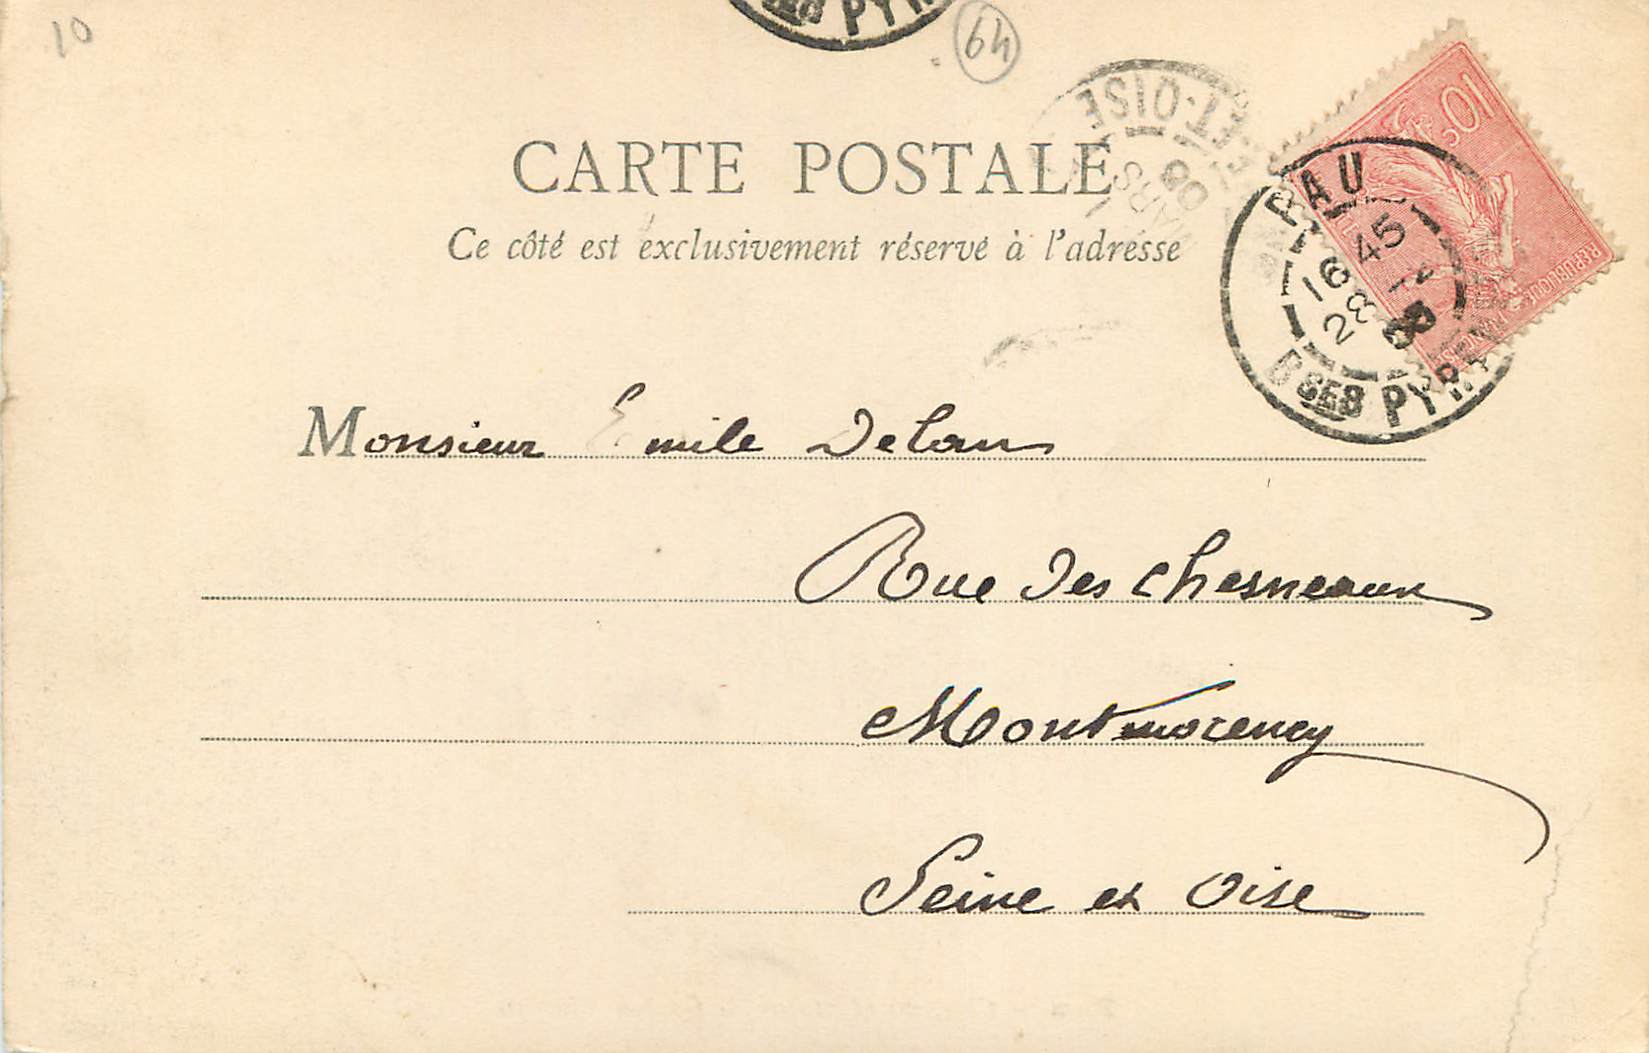 10
PYR
64
ET-OISE
MARS
CARTE POSTALE
Ce côté est exclusivement réservé à l'adresse
10c
REPUBLIQUE FRANÇAISE
PAU
16 45
28
Bses PYRENEES
Monsieur Emile Delans
Rue Des Chesneaux
Montmorency
Seine et Oise